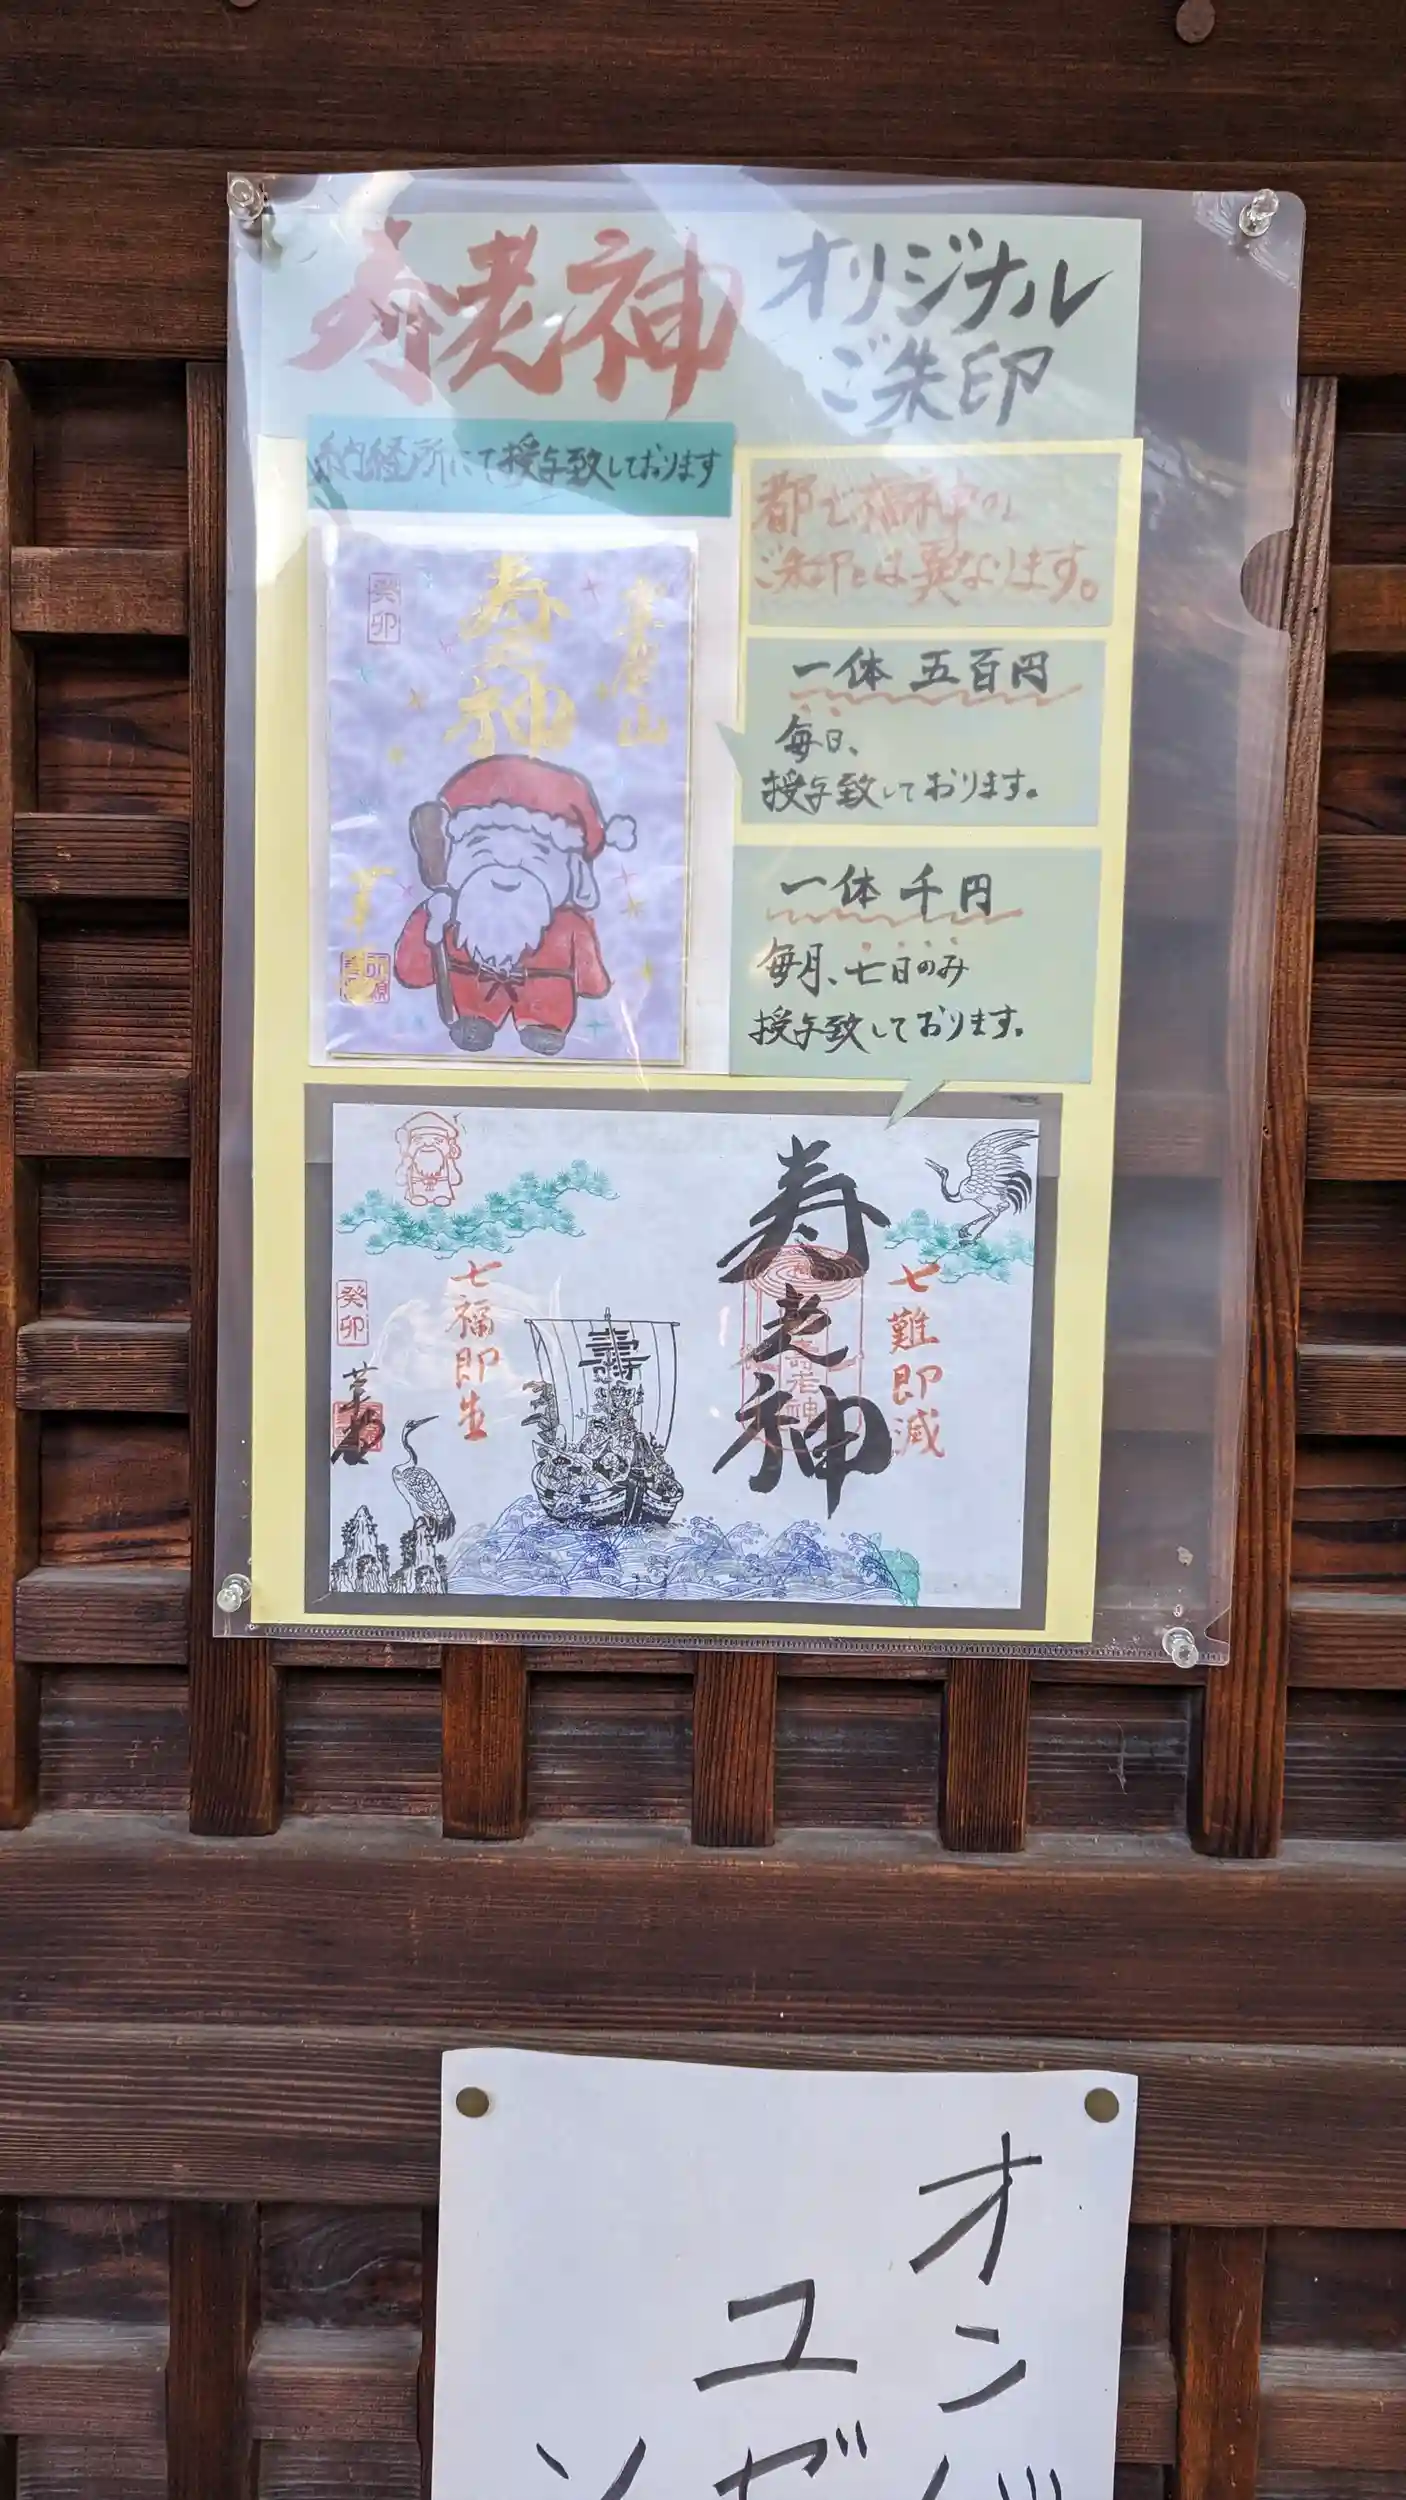 寿老神
オリジナル
ご朱印
納経所にて授与致しております
都七福神の
ご朱印とは異なります。
一体 五百円
毎日、
授与致しております。
一体 千円
毎月、七日のみ
授与致しております。
癸卯
寿老神
革嵜山
革堂
寿老神
七難即滅
七福即生
壽
寿老神
癸卯
革堂
オンバ
ユゼ
ソ